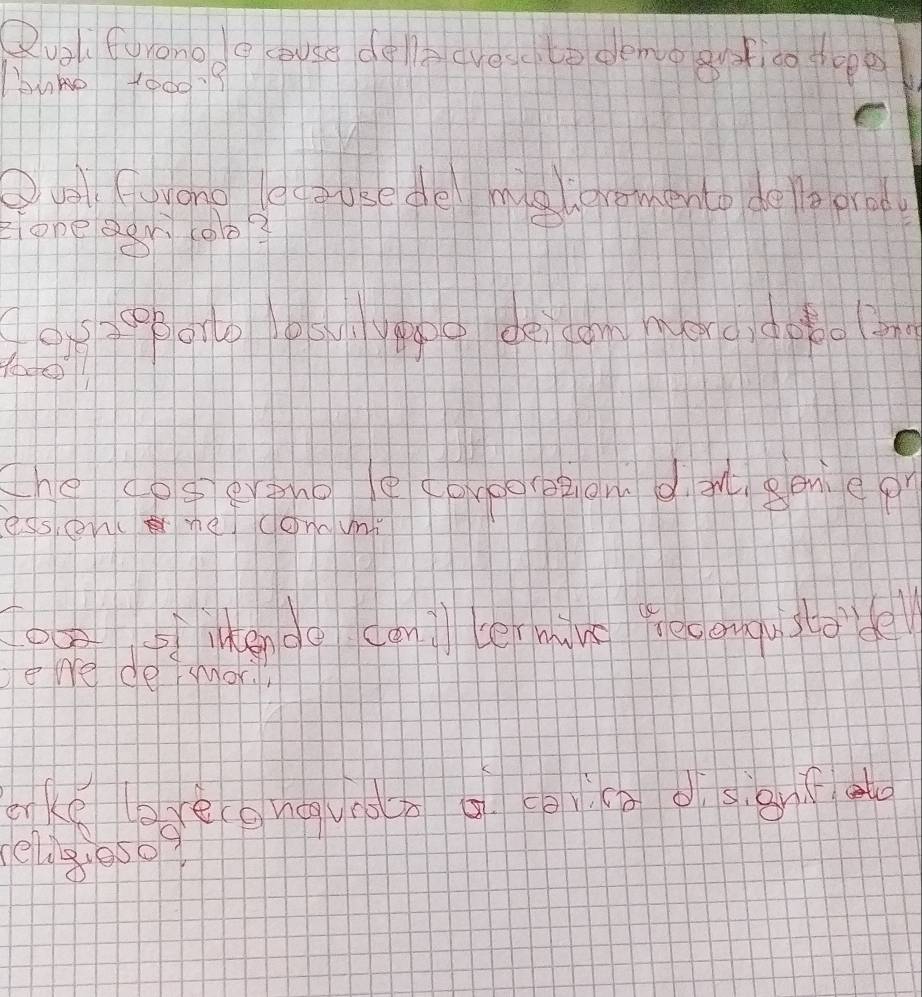 Quali furono le cause della crescita demografica dopo
l'anno 1000?
Quali furono le cause del miglioramento della produ
zione agricola?
Cosa comportò lo sviluppo dei commerci dopo l'anno
1000
che cos'erano le corporazioni di artigoni e pr
essioni nei comuni
Cosa si intende con il termine "reconquista" dell
e de mori
erkè la reconquista si carica di significato
religioso?